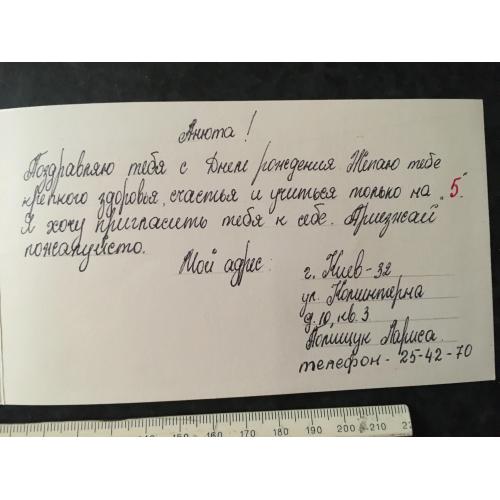 Анюта!
Поздравляю тебя с Днем рождения Желаю тебе
крепкого здоровья, счастья и учиться только на „5".
Я хочу пригласить тебя к себе. Приезжай
пожалуйста.
Мой адрес:
г. Киев-32
ул. Коминтерна
д.10, кв. 3
Полищук Лариса.
телефон - 25-42-70
150 160 170 180 190 200 210